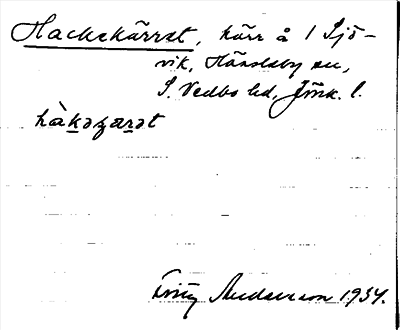 Hackekärret, kärr å 1 Sjö-
vik, Hässleby sn,
S. Vedbo hd, Jönk. l.
hàkəɟæṟət
Andersson 1934.